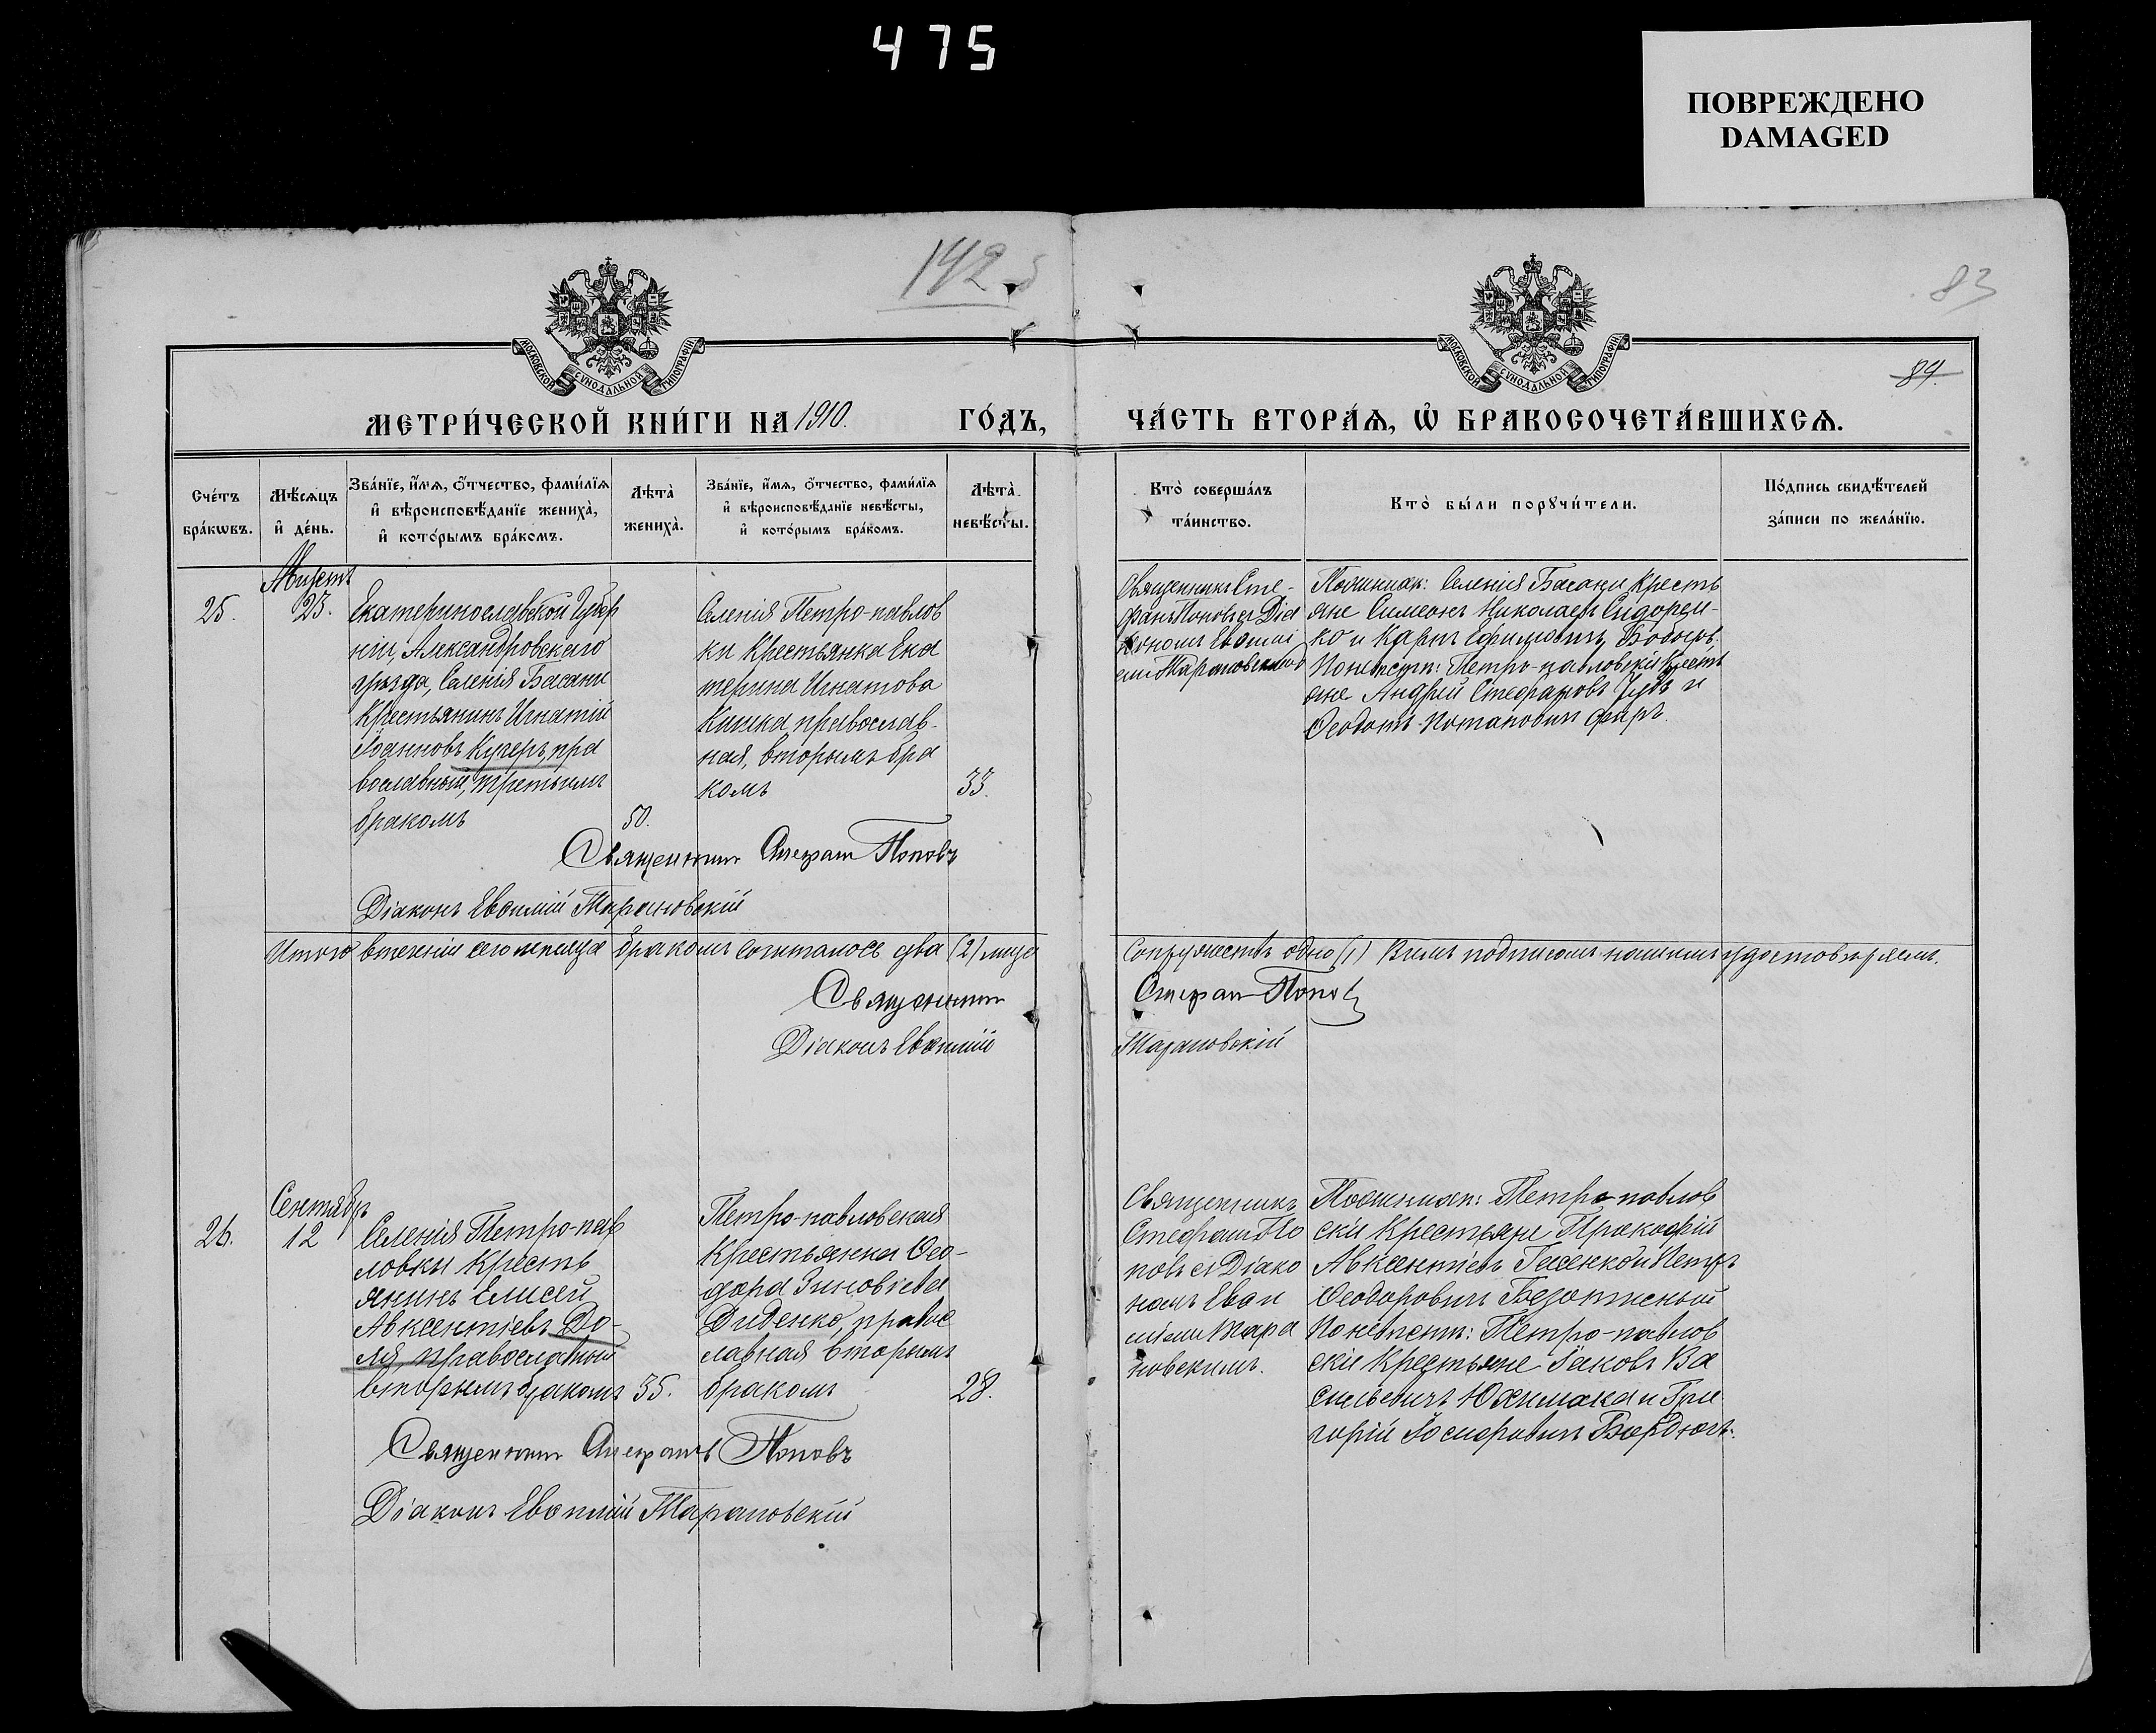 475
ПОВРЕЖДЕНО
DAMAGED
142
83
84.
МОСКОВСКОЙ СѴНОДАЛЬНОЙ ТИПОГРАФІИ
МОСКОВСКОЙ СѴНОДАЛЬНОЙ ТИПОГРАФІИ
МЕТРИ́ЧЕСКОЙ КНИ́ГИ НА 1910. ГО́ДЪ,
ЧА́СТЬ ВТОРА́Ѧ, Ѡ҆ БРАКОСОЧЕТА́ВШИХСѦ.
Сче́тъ
бра́кѡвъ.
Мѣ́сѧцъ
и҆ де́нь.
Зва́нїе, и҆́мѧ, ѻ҆́тчество, фами́лїѧ
и҆ вѣроисповѣ́данїе жениха̀,
и҆ кото́рымъ бра́комъ.
Лѣта̀
жениха̀.
Зва́нїе, и҆́мѧ, ѻ҆́тчество, фами́лїѧ
и҆ вѣроисповѣ́данїе невѣ́сты,
и҆ кото́рымъ бра́комъ.
Лѣта̀
невѣ́сты.
Кто̀ соверша́лъ
та́инство.
Кто̀ бы́ли порꙋчи́тели.
По́дпись свидѣ́телей
за́писи по жела́нїю.
25.
Августъ
23.
Екатеринославской Губер
ніи, Александровскаго
уѣзда, Селенія Басани
Крестьянинъ Игнатій
Іоанновъ Кучеръ, пра
вославный, третьимъ
бракомъ
50.
Селенія Петро-павлов
ки Крестьянка Ека
терина Игнатова
Кишка православ-
ная, вторымъ бра
комъ
33.
Священникъ Сте-
фанъ Поповъ съ Діа
кономъ Евѳимі
емъ Тарановскимъ
По жених: Селенія Басани Кресть
яне Симеонъ Николаевъ Сидорен-
ко и Карпъ Ефимовичъ
По невѣстѣ: Петро-павловскіе Кресть
яне Андрей Стефановъ Зубъ и
Ѳеодотъ Потаповичъ
Священникъ Стефанъ Поповъ
Діаконъ Евѳимій Тарановскій
Итого втеченіи сего мѣсяца бракомъ сочеталось два (2) лица
Супружествъ одно (1) В чемъ подписомъ нашимъ удостовѣряемъ.
Священникъ
Стефанъ Поповъ
Діаконъ Евѳимій
Тарановскій
26.
Сентябрь
12
Селенія Петро-пав
ловки Кресть
янинъ Елисей
Авксентіевъ До-
ля, православный
вторымъ бракомъ
35.
Петро-павловская
Крестьянка Ѳео-
дора Зиновіева
Диденко, правос
лавная вторымъ
бракомъ
28.
Священникъ
Стефанъ По
повъ съ Діако
номъ Еван
міемъ Тара
новскимъ.
По жених: Петро-павлов
скіе Крестьяне Прокофій
Авксентіевъ и Петръ
Ѳеодоровичъ
По невѣстѣ: Петро-павлов
скіе Крестьяне Іаковъ Ва
сильевичъ и Гри
горій Іосифовичъ
Священникъ Стефанъ Поповъ
Діаконъ Евѳимій Тарановскій